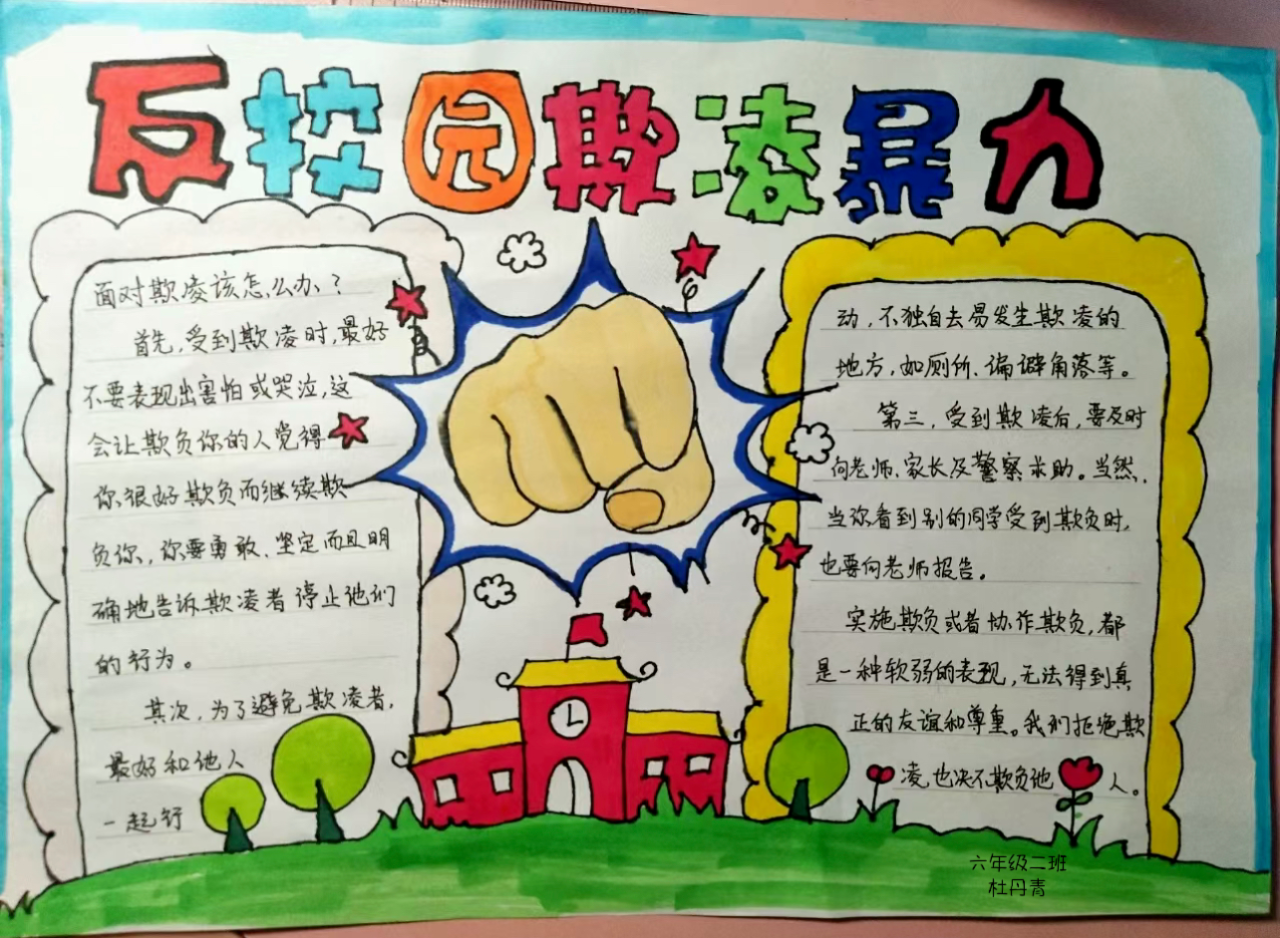 反校园欺凌暴力
面对欺凌该怎么办?
首先,受到欺凌时,最好
不要表现出害怕或哭泣,这
会让欺负你的人觉得
你很好欺负而继续欺
负你,你要勇敢、坚定而且明
确地告诉欺凌者停止他们
的行为。
其次,为了避免欺凌者,
最好和他人
一起行
动,不独自去易发生欺凌的
地方,如厕所、偏避角落等。
第三,受到欺凌后,要及时
向老师、家长及警察求助。当然,
当你看到别的同学受到欺负时,
也要向老师报告。
实施欺负或者协作欺负,都
是一种软弱的表现,无法得到真
正的友谊和尊重。我们拒绝欺
凌,也决不欺负他人。
六年级二班
杜丹青